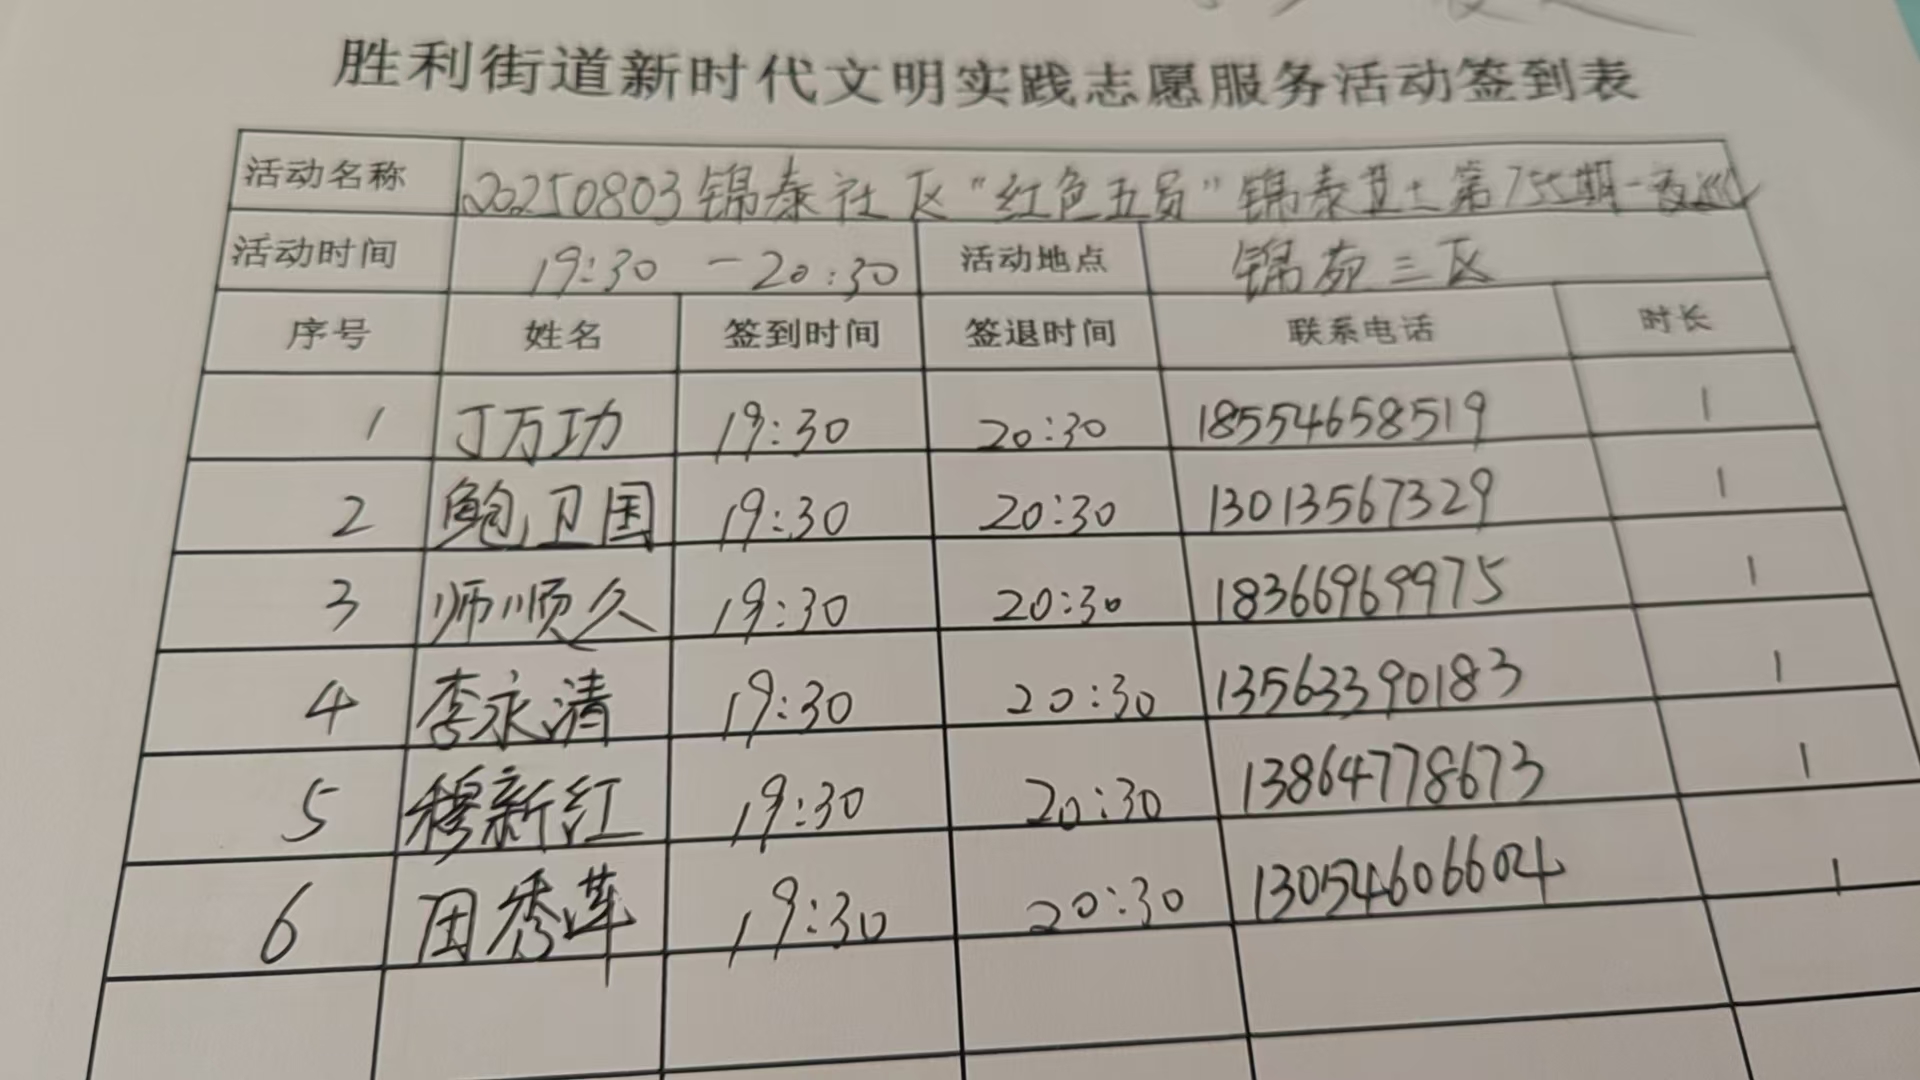 胜利街道新时代文明实践志愿服务活动签到表
活动名称 20250803锦泰社区“红色五员”锦泰卫士第755期-夜巡
活动时间 19:30 -20:30 活动地点 锦苑三区
序号 姓名 签到时间 签退时间 联系电话 时长
1 丁万功 19:30 20:30 18554658519 1
2 鲍卫国 19:30 20:30 13013567329 1
3 师顺久 19:30 20:30 18366969975 1
4 李永清 19:30 20:30 13563390183 1
5 穆新红 19:30 20:30 13864778673 1
6 田秀莲 19:30 20:30 13054606604 1